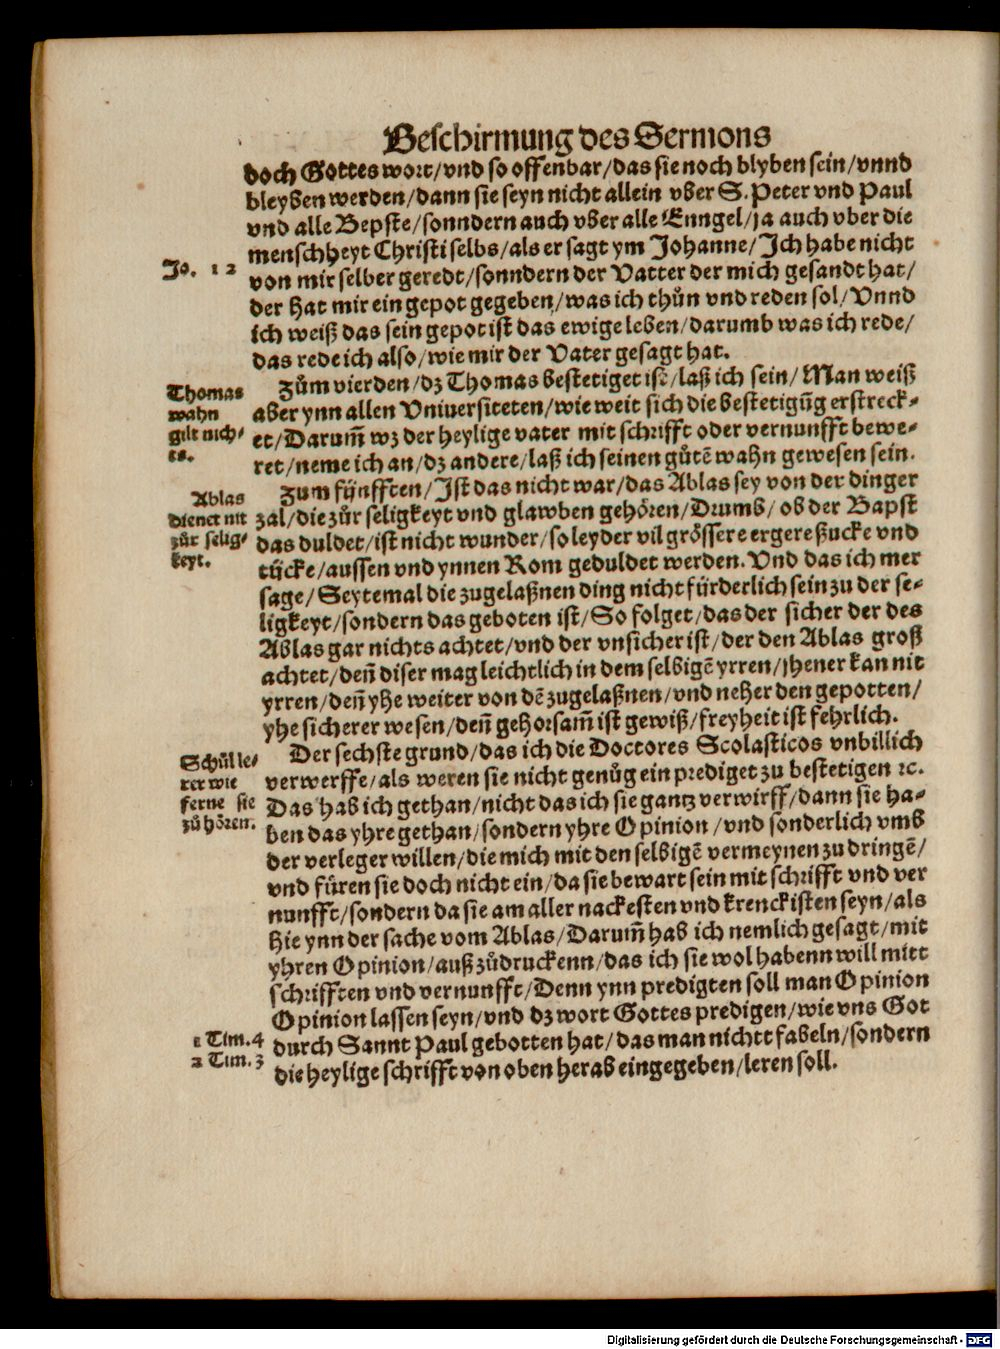 Beschirmung des Sermons
doch Gottes wort/vnd so offenbar/das sie noch blyben sein/vnnd
bleyben werden/dann sie seyn nicht allein vber S. Peter vnd Paul
vnd alle Bepste/sonndern auch vber alle Enngel/ja auch vber die
menschheyt Christi selbs/als er sagt ym Johanne/Ich habe nicht
Jo. 12
von mir selber geredt/sonndern der Vatter der mich gesandt hat/
der hat mir ein gepot gegeben/was ich thůn vnd reden sol/Vnnd
ich weiß das sein gepot ist das ewige leben/darumb was ich rede/
das rede ich also/wie mir der Vater gesagt hat.
Thomas
wahn
gilt nich⸗
ts.
Zům vierden/dz Thomas bestetiget ist/laß ich sein/Man weiß
aber ynn allen Vniuersiteten/wie weit sich die bestetigūg erstreck⸗
et/Darum̃ wz der heylige vater mit schrifft oder vernunfft bewe⸗
ret/neme ich an/dz andere/laß ich seinen gůtē wahn gewesen sein.
Ablas
dienet nit
zůr selig⸗
keyt.
Zum fünfften/Ist das nicht war/das Ablas sey von der dinger
zal/die zůr seligkeyt vnd glawben gehören/Drumb/ob der Bapst
das duldet/ist nicht wunder/so leyder vil grössere ergereßucke vnd
tücke/aussen vnd ynnen Rom geduldet werden. Vnd das ich mer
sage/Seytemal die zugelaßnen ding nicht fürderlich sein zu der se⸗
ligkeyt/sondern das geboten ist/So folget/das der sicher der des
Ablas gar nichts achtet/vnd der vnsicher ist/der den Ablas groß
achtet/den̄ diser mag leichtlich in dem selbigē yrren/jhener kan nit
yrren/den̄ yhe weiter von dē zugelaßnen/vnd neher den gepotten/
yhe sicherer wesen/den̄ gehorsam̄ ist gewiß/freyheit ist fehrlich.
Schülle⸗
rer wie
ferne sie
zů hören.
Der sechste grund/das ich die Doctores Scolasticos vnbillich
verwerffe/als weren sie nicht genůg ein prediget zu bestetigen ꝛc.
Das hab ich gethan/nicht das ich sie gantz verwirff/dann sie ha⸗
ben das yhre gethan/sondern yhre Opinion/vnd sonderlich vmb
der verleger willen/die mich mit den selbigē vermeynen zu dringē/
vnd füren sie doch nicht ein/da sie bewart sein mit schrifft vnd ver
nunfft/sondern da sie am aller nackesten vnd krenckisten seyn/als
hie ynn der sache vom Ablas/Darum̃ hab ich nemlich gesagt/mit
yhren Opinion/auß zůdruckenn/das ich sie wol habenn will mitt
schrifften vnd vernunfft/Denn ynn predigten soll man Opinion
Opinion lassen seyn/vnd dz wort Gottes predigen/wie vns Got
1 Tim. 4
2 Tim. 3
durch Sannt Paul gebotten hat/das man nichtt fabeln/sondern
die heylige schrifft von oben herab eingegeben/leren soll.
Digitalisierung gefördert durch die Deutsche Forschungsgemeinschaft - DFG